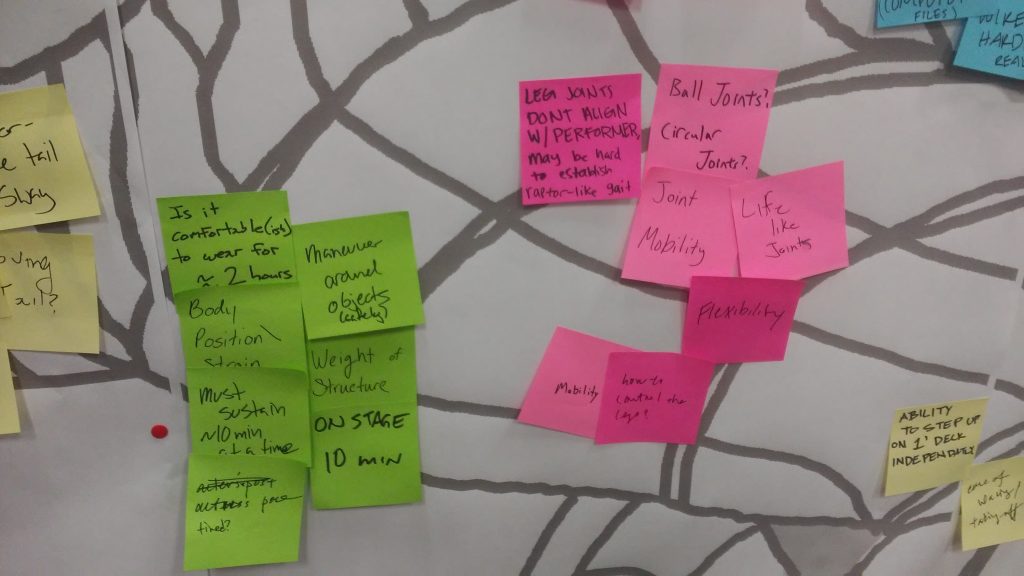 tail
Sway
Is it
comfortable(ish)
to wear for
≈ 2 hours
Body
Position\
Strain
Must
sustain
~10 min
at a time
pose
tired?
Maneuver
around
objects
(safely)
Weight of
Structure
ON STAGE
10 MIN
LEG JOINTS
DONT ALIGN
W/ PERFORMER,
may be hard
to establish
raptor-like gait
Ball Joints?
Circular
Joints?
Joint
Mobility
Life
like
Joints
Flexibility
Mobility
how to
control the
legs?
FILES)
HARD
ABILITY
TO STEP UP
ON 1' DECK
INDEPENDATELY
ease of
taking off